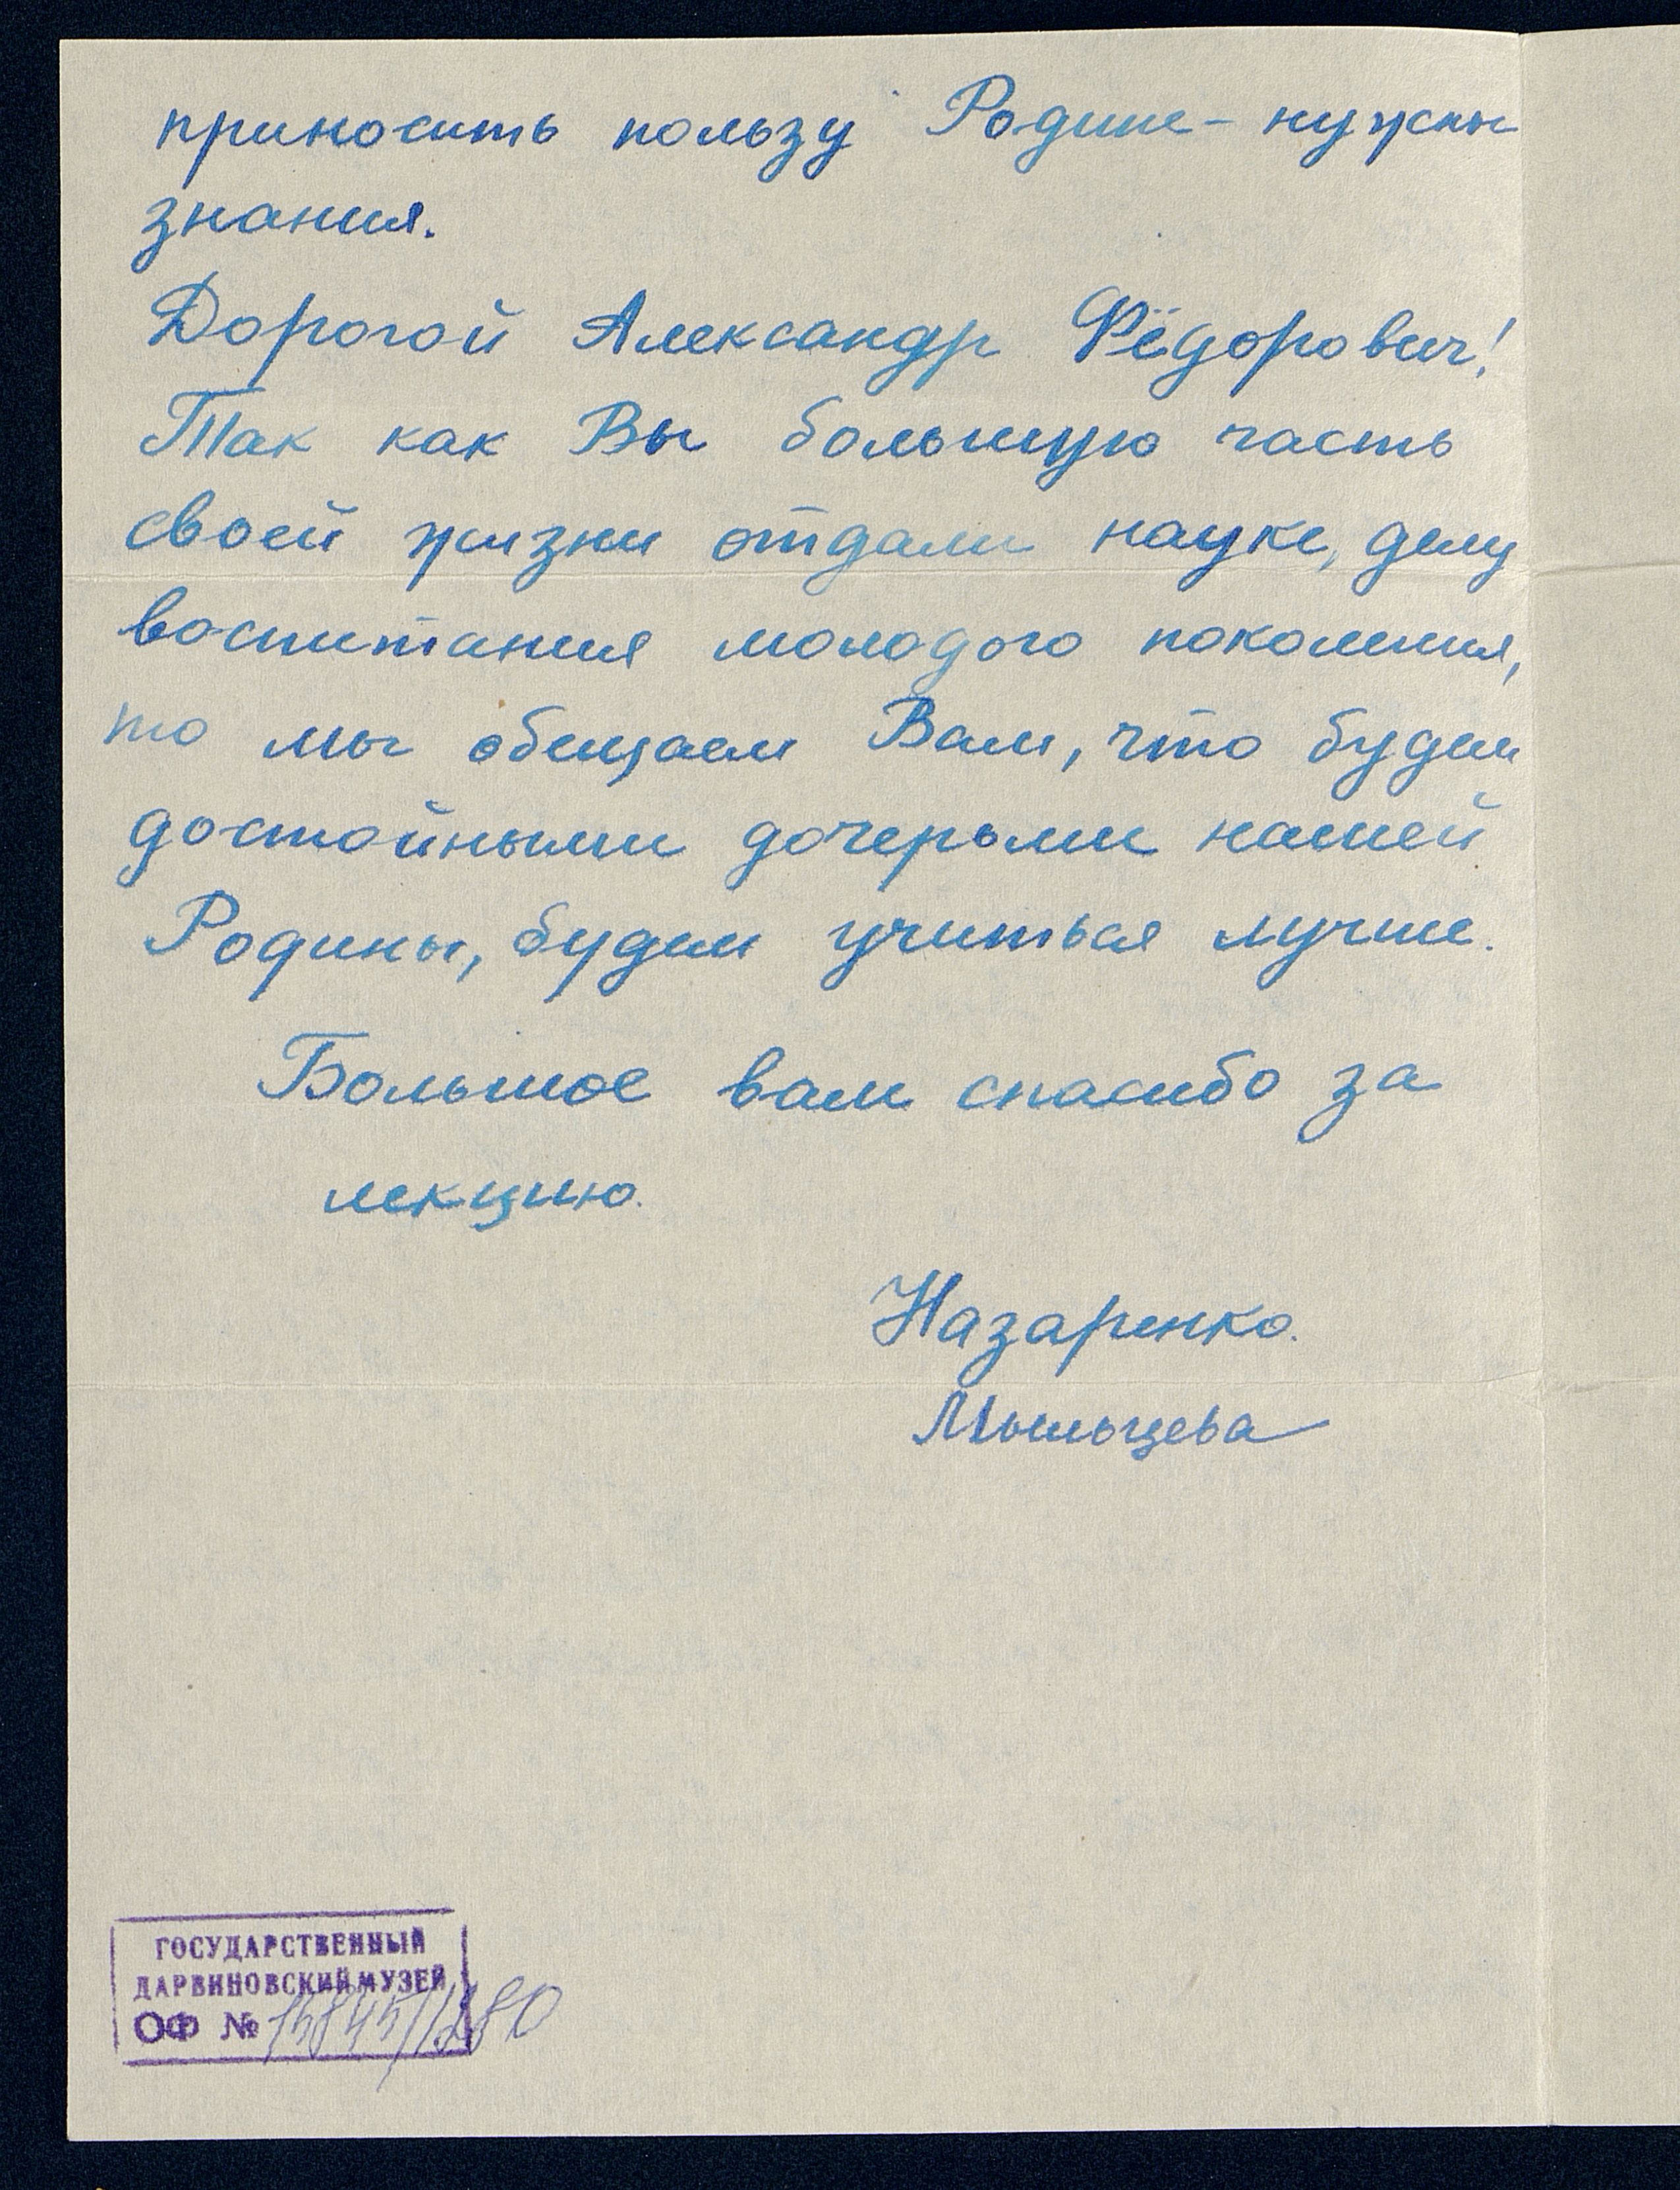 приносить пользу Родине - нужны
знания.
Дорогой Александр Фёдорович!
Так как Вы большую часть
своей жизни отдали науке, делу
воспитания молодого поколения,
то мы обещаем Вам, что будем
достойными дочерьми нашей
Родины, будем учиться лучше.
Большое вам спасибо за
лекцию.
Назаренко.
Мыльцева
ГОСУДАРСТВЕННЫЙ
ДАРВИНОВСКИЙ МУЗЕЙ
ОФ №